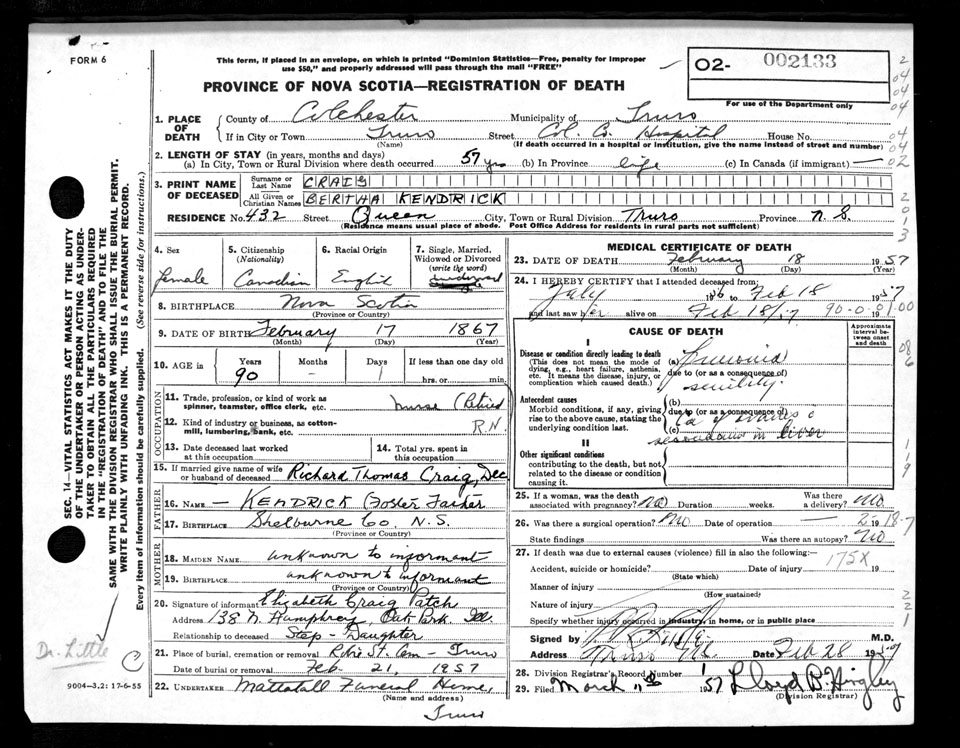 FORM 6
This form, if placed in an envelope, on which is printed "Dominion Statistics—Free, penalty for improper
use $50," and properly addressed will pass through the mail "FREE"
PROVINCE OF NOVA SCOTIA—REGISTRATION OF DEATH
O2- 002133
For use of the Department only
1. PLACE OF DEATH
County of Colchester Municipality of Truro
If in City or Town Truro Street Col. Co. Hospital House No.
(Name) (If death occurred in a hospital or institution, give the name instead of street and number)
2. LENGTH OF STAY (in years, months and days)
(a) In City, Town or Rural Division where death occurred 57 yrs (b) In Province life (c) In Canada (if immigrant) —
3. PRINT NAME OF DECEASED
Surname or Last Name CRAIG
All Given or Christian Names BERTHA KENDRICK
RESIDENCE No. 432 Street Queen City, Town or Rural Division Truro Province N.S.
(Residence means usual place of abode. Post Office Address for residents in rural parts not sufficient)
4. Sex female
5. Citizenship (Nationality) Canadian
6. Racial Origin English
7. Single, Married, Widowed or Divorced (write the word) widowed
8. BIRTHPLACE Nova Scotia
(Province or Country)
9. DATE OF BIRTH February 17 1867
(Month) (Day) (Year)
10. AGE in Years 90 Months — Days If less than one day old hrs. or min.
OCCUPATION
11. Trade, profession, or kind of work as
spinner, teamster, office clerk, etc. nurse (Retired
12. Kind of industry or business, as cotton-
mill, lumbering, bank, etc. R.N.
13. Date deceased last worked at this occupation
14. Total yrs. spent in this occupation
15. If married give name of wife
or husband of deceased Richard Thomas Craig, Dec
FATHER
16. NAME — KENDRICK (Foster Father
17. BIRTHPLACE Shelburne Co. N.S.
(Province or Country)
MOTHER
18. MAIDEN NAME unknown to informant
19. BIRTHPLACE unknown to informant
(Province or Country)
20. Signature of informant Elizabeth Craig Patch
Address 138 N. Humphrey, Oak Park. Ill
Relationship to deceased Step-Daughter
21. Place of burial, cremation or removal Robie St. Cem — Truro
Date of burial or removal Feb 21, 1957
22. UNDERTAKER Mattatall Funeral Home,
(Name and address)
Truro
MEDICAL CERTIFICATE OF DEATH
23. DATE OF DEATH February 18 1957
(Month) (Day) (Year)
24. I HEREBY CERTIFY that I attended deceased from:
July 1956 to Feb 18 1957
and last saw her alive on Feb 18/57 19
CAUSE OF DEATH
Approximate interval between onset and death
I
Disease or condition directly leading to death
(This does not mean the mode of
dying, e.g., heart failure, asthenia,
etc. It means the disease, injury, or
complication which caused death.)
(a)
due to (or as a consequence of)
senility.
Antecedent causes
Morbid conditions, if any, giving
rise to the above cause, stating the
underlying condition last.
(b)
due to (or as a consequence of)
(c) Ca of ovaries c
secondaries in liver
II
Other significant conditions
contributing to the death, but not
related to the disease or condition
causing it.
25. If a woman, was the death
associated with pregnancy? No Duration weeks. Was there a delivery? No
26. Was there a surgical operation? No Date of operation — 19
State findings Was there an autopsy? No
27. If death was due to external causes (violence) fill in also the following:—
Accident, suicide or homicide? Date of injury 19
175X
(State which)
Manner of injury
(How sustained)
Nature of injury
Specify whether injury occurred in industry, in home, or in public place
Signed by M.D.
Address Truro NS. Date Feb 28 1957
28. Division Registrar's Record Number
29. Filed March 1957 Lloyd B. Hingley
(Division Registrar)
SEC. 14—VITAL STATISTICS ACT MAKES IT THE DUTY
OF THE UNDERTAKER OR PERSON ACTING AS UNDER-
TAKER TO OBTAIN ALL THE PARTICULARS REQUIRED
IN THE "REGISTRATION OF DEATH" AND TO FILE THE
SAME WITH THE DIVISION REGISTRAR WHO SHALL ISSUE THE BURIAL PERMIT.
WRITE PLAINLY WITH UNFADING INK. THIS IS A PERMANENT RECORD.
Every item of information should be carefully supplied. (See reverse side for instructions.)
Dr. Little
9004—3.2: 17-6-55